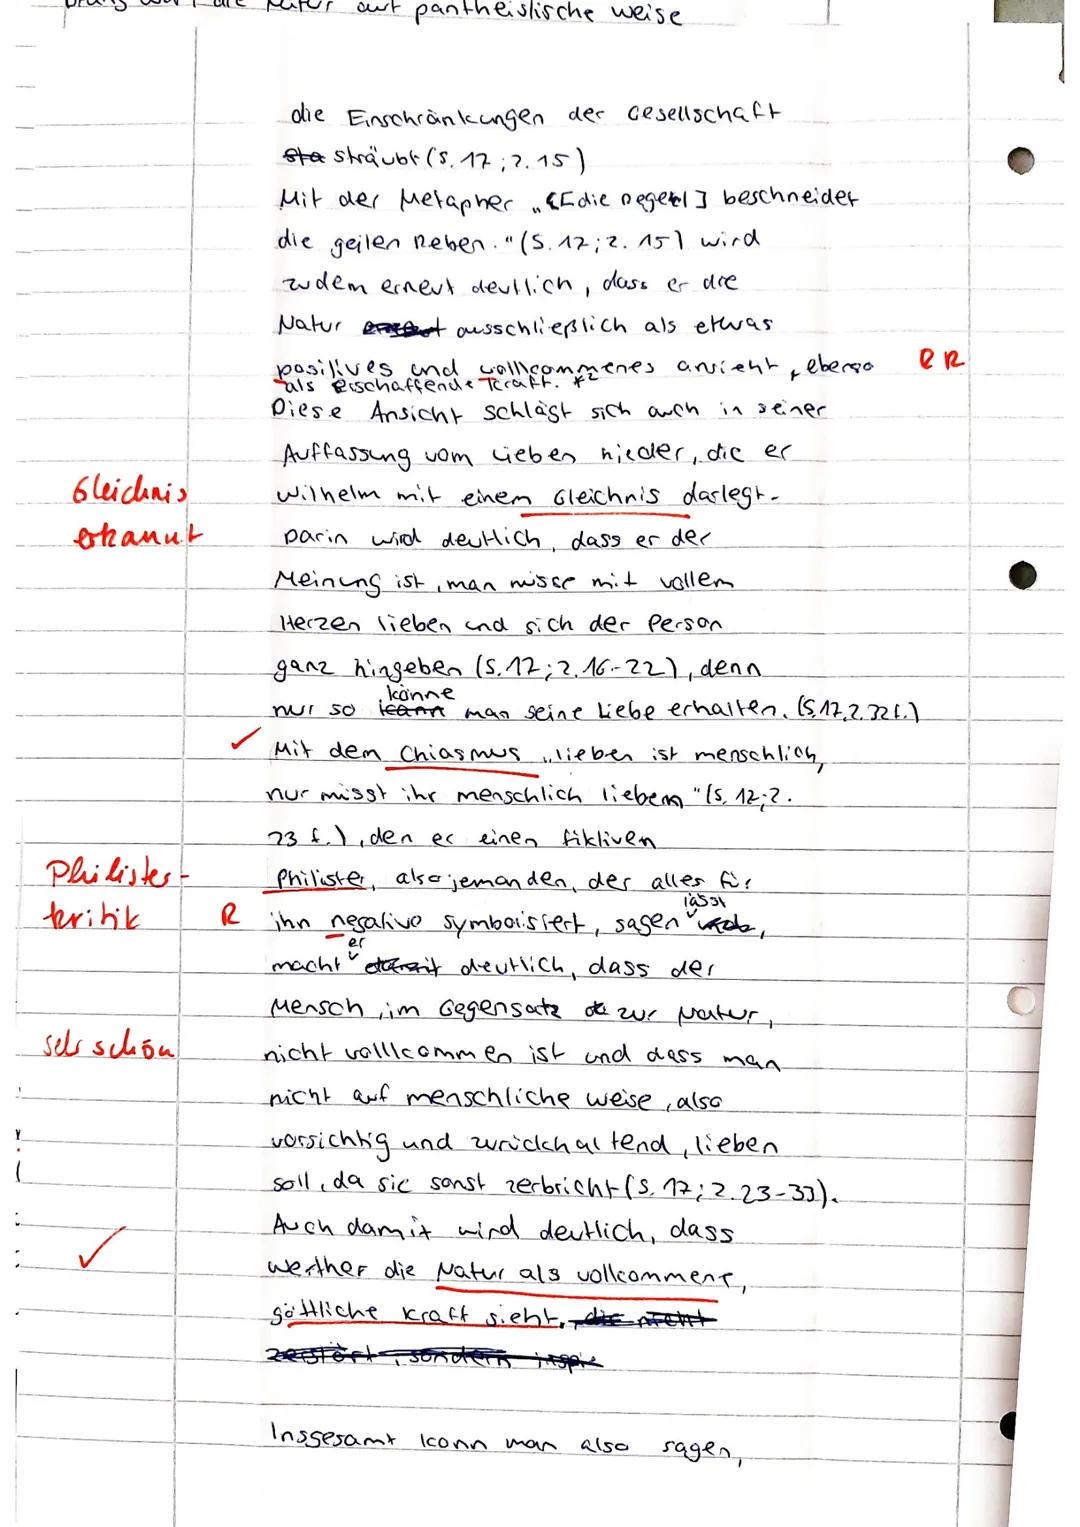 die Natur auf pantheistische weise
die Einschränkungen der Gesellschaft
sta sträubt (S. 12; Z. 15)
Mit der Metapher „[die Regel] beschneidet
die geilen Reben." (S. 12; Z. 15) wird
zudem erneut deutlich, dass er die
Natur ausschließlich als etwas
positives und vollkommenes ansieht, ebenso R R
als erschaffende Kraft. *2
Diese Ansicht schlägt sich auch in seiner
Auffassung vom Lieben nieder, die er
Gleichnis Wilhelm mit einem Gleichnis darlegt.
erkannt Darin wird deutlich, dass er der
Meinung ist, man müsse mit vollem
Herzen lieben und sich der Person
ganz hingeben (S. 12; Z. 16-22), denn
könne
nur so kann man seine Liebe erhalten. (S. 12, Z. 32 f.)
✓ Mit dem Chiasmus „lieben ist menschlich,
nur müsst ihr menschlich lieben" (S. 12; Z.
23 f.), den er einen fiktiven
Philister- Philister, also jemanden, der alles für
lässt
kritik R ihn negative symboisiert, sagen
er
macht deutlich, dass der
Mensch, im Gegensatz zur Natur,
sehr schön nicht volllkommen ist und dass man
nicht auf menschliche weise, also
vorsichtig und zurückhaltend, lieben
soll, da sie sonst zerbricht (S. 12; Z. 23-33).
Auch damit wird deutlich, dass
✓ Werther die Natur als vollkommene,
göttliche Kraft sieht, die nicht
zerstört, sondern inspie
Insgesamt kann man also sagen,